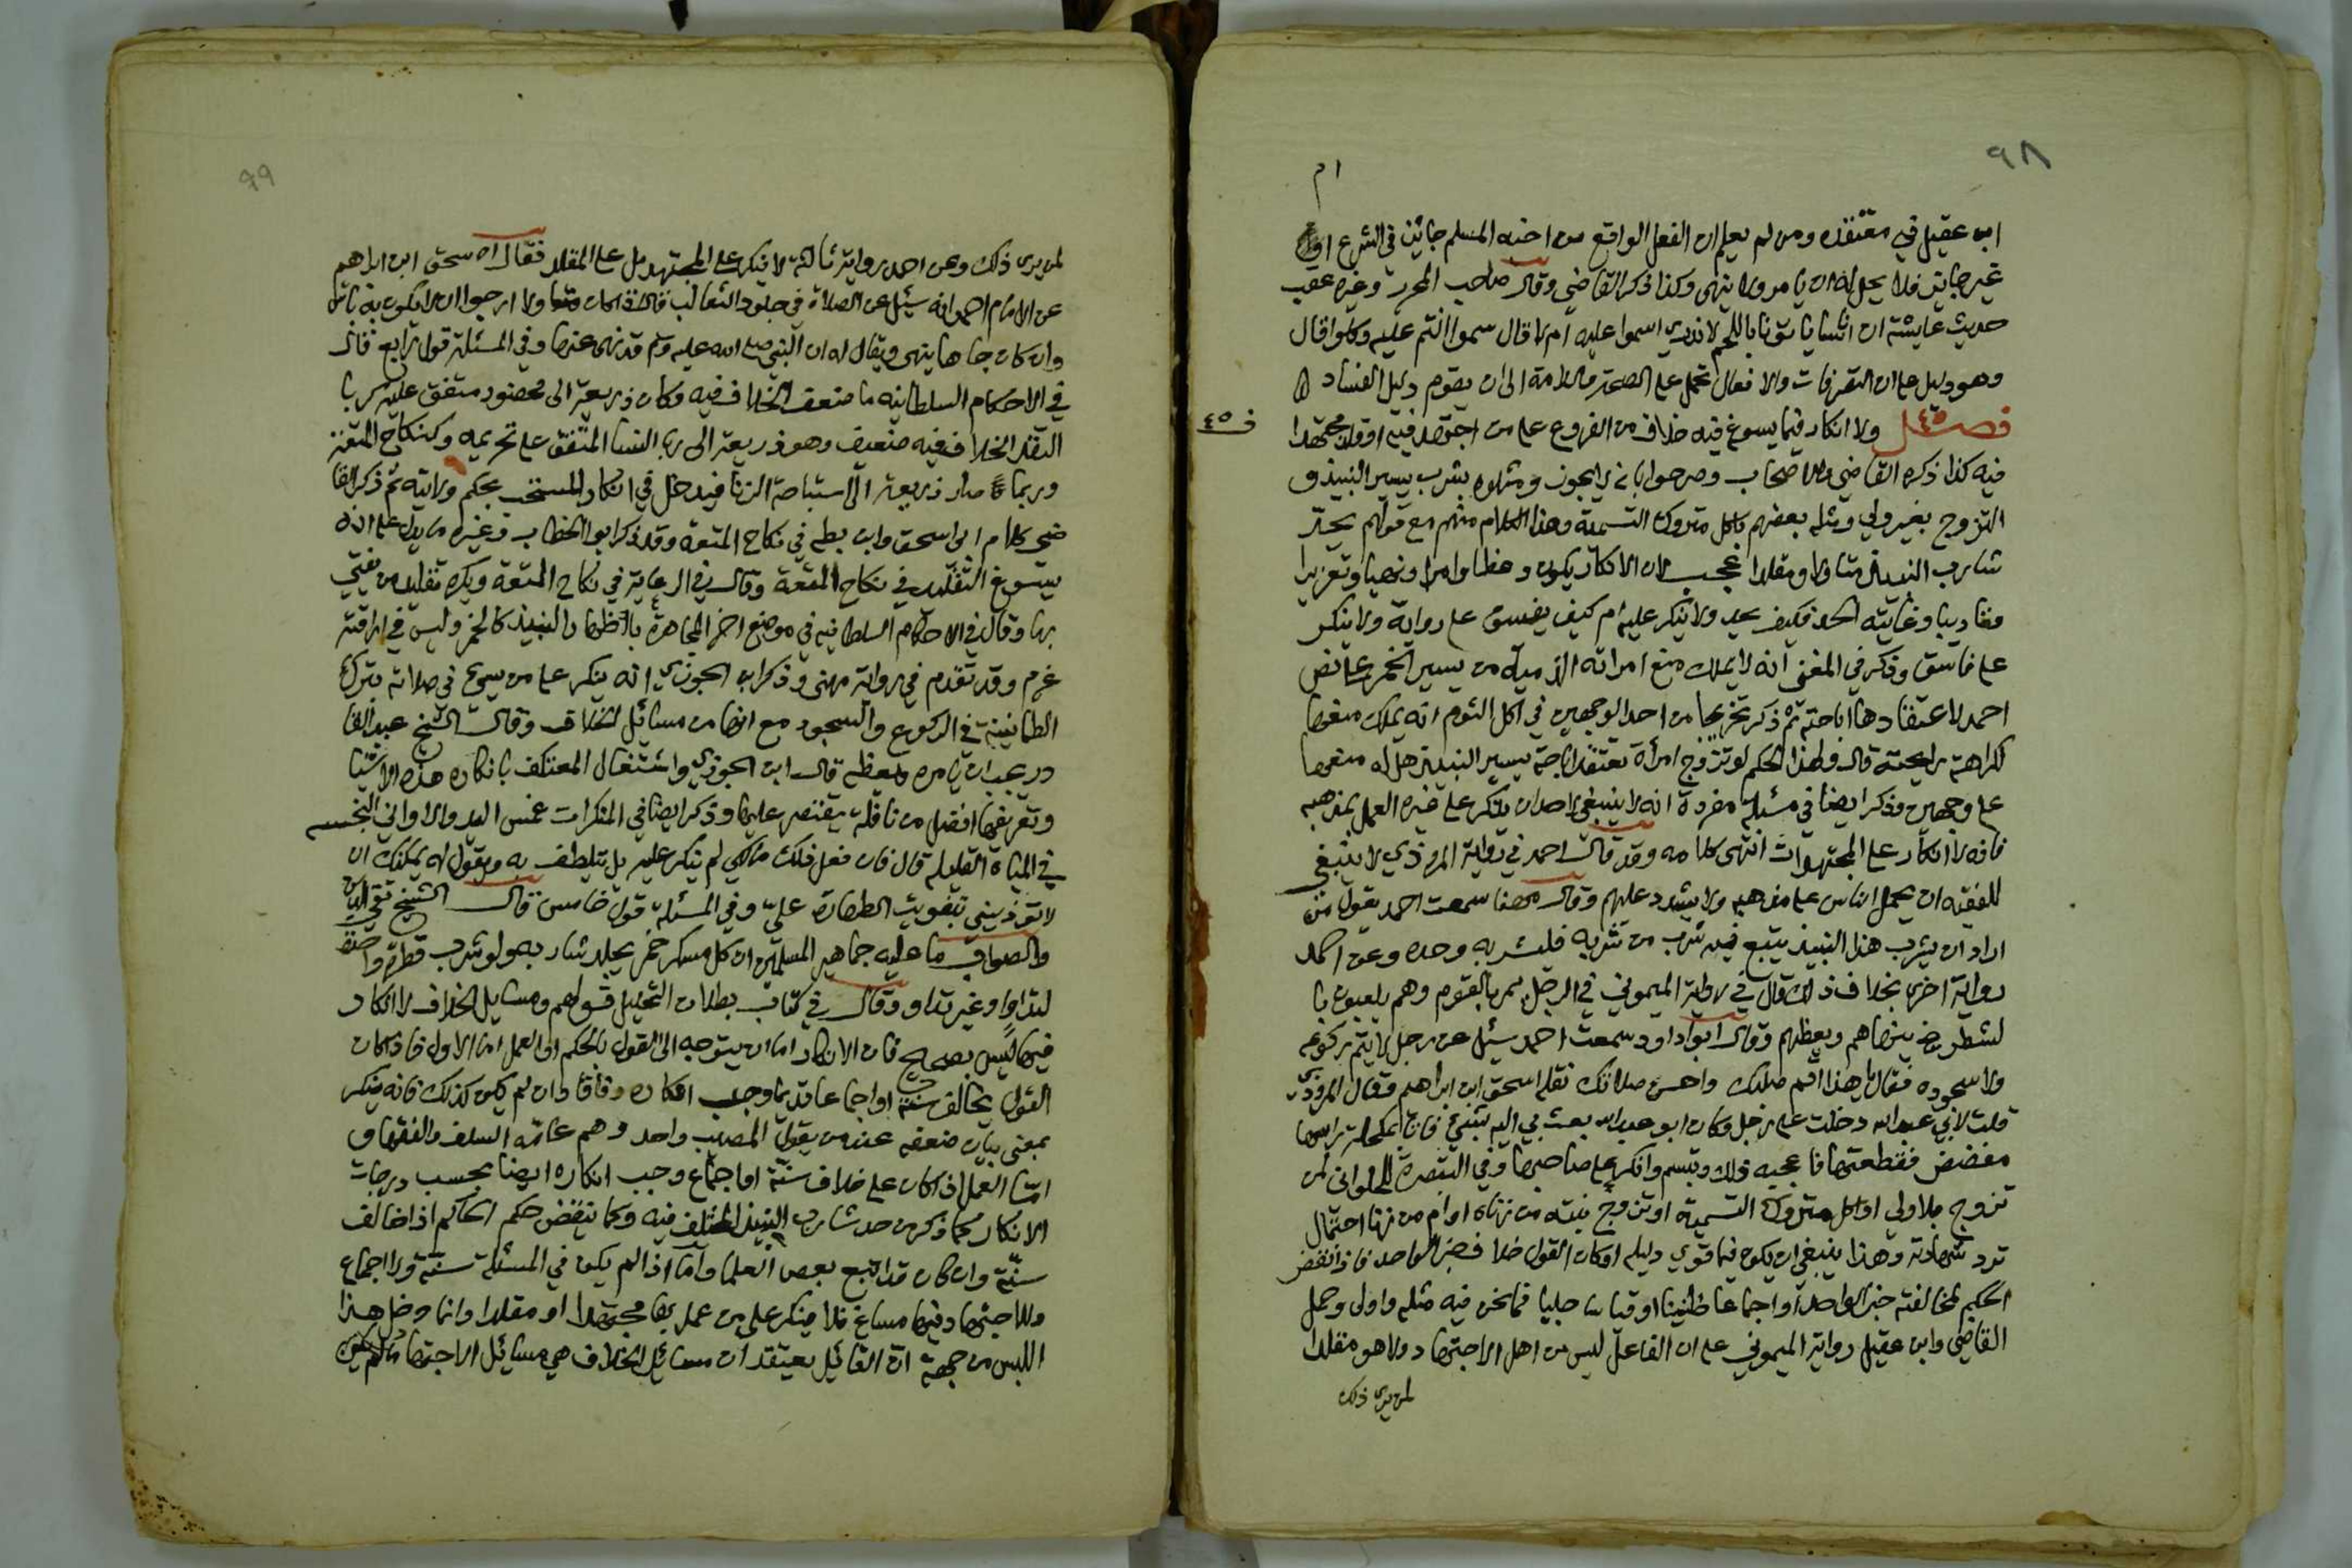 ٩٨
ام
ابن عقيل في معتقده ومن لم يعلم ان الفعل الواقع من اخيه المسلم جائز في الشرع او
غير جائز فلا يحل له ان يامر ولا ينهى وكذا ذكر القاضي وقال صاحب المحرر وغيره عقب
حديث عايشة ان اناسا ياتونا باللحم لا ندري اسموا عليه ام لا قال سموا انتم عليه وكلوا قال
وهو دليل على ان التصرفات والافعال تحمل على الصحة والسلامة الى ان يقوم دليل الفساد
فصل ولا انكار فيما يسوغ فيه خلاف من الفروع على من اجتهد فيه او قلد مجتهدا
ف ٤٥
فيه كذا ذكره القاضي والاصحاب وصرحوا بانه لا يجوز ومثلوه بشرب يسير النبيذ و
التزوج بغير ولي ومثله بعضهم باكل متروك التسمية وهذا الكلام منهم مع قولهم يحد
شارب النبيذ متاولا ومقلدا عجب لان الانكار يكون وعظا وامرا ونهيا وتعزيرا
وتاديبا وغايته الحد فكيف يحد ولا ينكر عليه ام كيف يفسق على رواية ولا ينكر
على فاسق وذكر في المغني انه لا يملك منع امراته الذمية من يسير الخمر على نص
احمد لاعتقادها اباحته ثم ذكر تخريجا من احد الوجهين في اكل الثوم انه يملك منعها
لكراهة رايحته قال وهذا الحكم لو تزوج امرأة تعتقد اباحة يسير النبيذ هل له منعها
على وجهين وذكر ايضا في مسئلة مفردة انه لا ينبغي لاحد ان ينكر على غيره العمل بمذهبه
فانه لا انكار على المجتهدات انتهى كلامه وقد قال احمد في رواية المروذي لا ينبغي
للفقيه ان يحمل الناس على مذهبه ولا يشدد عليهم وقال مهنا سمعت احمد يقول من
اراد ان يشرب هذا النبيذ يتبع فيه شرب من شربه فليشربه وحده وعن احمد
رواية اخرى بخلاف ذلك قال في رواية الميموني في الرجل يمر بالقوم وهم يلعبون با
لشطرنج ينهاهم ويعظهم وقال ابو داود سمعت احمد سئل عن رجل لا يتم ركوعه
ولا سجوده فقال يا هذا اقم صلبك واحسن صلاتك نقله اسحق ابن ابراهيم وقال المروذي
قلت لابي عبد الله دخلت على رجل وكان ابو عبد الله بعث بي اليه بشيء فاتى بمكحلة راسها
مفضض فقطعتها فاعجبه ذلك وتبسم وانكر على صاحبها وفي التبصرة للحلواني لمن
تزوج بلا ولي او اكل متروك التسمية او تزوج بنته من زناه او ام من زنا احتمال
ترد شهادته وهذا ينبغي ان يكون فيما قوي دليله او كان القول خلاف خبر الواحد فاذا نقض
الحكم لمخالفته خبر الواحد او اجماعا ظنيا او قياسا جليا فما نحن فيه مثله واولى وحمل
القاضي وابن عقيل رواية الميموني على ان الفاعل ليس من اهل الاجتهاد ولا هو مقلدا
لمن يرى ذلك
٩٩
لمن يرى ذلك وعن احمد رواية ثالثة لا ينكر على المجتهد بل على المقلد فقال اسحق ابن ابراهيم
عن الامام احمد انه سئل عن الصلاة في جلود الثعالب قال اذا كان متاولا ارجوا ان لا يكون به باس
وان كان جاهلا ينهى ويقال له ان النبي صلى الله عليه وسلم قد نهى عنها وفي المسئلة قول رابع قال
في الاحكام السلطانيه ما ضعف الخلاف فيه وكان ذريعة الى محضور متفق عليه كربا
النقد الخلاف فيه ضعيف وهو ذريعة الى ربا النسا المتفق على تحريمه وكنكاح المتعة
وربما صار ذريعة الى استباحة الزنا فيدخل في انكار المحتسب بحكم ولايته ثم ذكر القا
ضي كلام ابي اسحق وابن بطه في نكاح المتعة وقد ذكر ابو الخطاب وغيره ما يدل على انه
يسوغ التقليد في نكاح المتعة وقال في الرعاية في نكاح المتعة ويكره تقليد من يفتي
بها وقال في الاحكام السلطانيه في موضع اخر المجاهرة باظهار النبيذ كالخمر وليس في اراقته
غرم وقد تقدم في رواية مهنى وذكر ابن الجوزي انه ينكر على من يسيء في صلاته بترك
الطمانينة في الركوع والسجود مع انها من مسائل الخلاف وقال الشيخ عبد القا
در يجب ان يامره ويعظه قال ابن الجوزي واشتغال المعتكف بانكار هذه الاشيا
وتعريفها افضل من نافلة يقتصر عليها وذكر ايضا في المنكرات غمس اليد والاواني النجسه
في المياه القليله قال فان فعل ذلك مالكي لم ينكر عليه بل يتلطف به ويقول له يمكنك ان
لا تؤذيني بتفويت الطهارة علي وفي المسئلة قول خامس قال الشيخ تقي الدين
والصواب ما عليه جماهير المسلمين ان كل مسكر خمر يجلد شاربه ولو شرب قطرة واحدة
لتداو او غير تداو وقال في كتاب بطلان التحليل قولهم ومسايل الخلاف لا انكار
فيها ليس بصحيح فان الانكار اما ان يتوجه الى القول بالحكم او العمل اما الاول فاذا كان
القول يخالف سنة او اجماعا قديما وجب انكاره وفاقا وان لم يكن كذلك فانه ينكر
بمعنى بيان ضعفه عند من يقول المصيب واحد وهم عامة السلف والفقهاء و
اما العمل اذا كان على خلاف سنة او اجماع وجب انكاره ايضا بحسب درجات
الانكار كما ذكر من حد شارب النبيذ المختلف فيه وكما ينقض حكم الحاكم اذا خالف
سنة وان كان قد اتبع بعض العلما واما اذا لم يكن في المسئلة سنة ولا اجماع
وللاجتهاد فيها مساغ فلا ينكر على من عمل بها مجتهدا او مقلدا وانما دخل هذا
اللبس من جهة ان القائل يعتقد ان مسائل الخلاف هي مسائل الاجتهاد